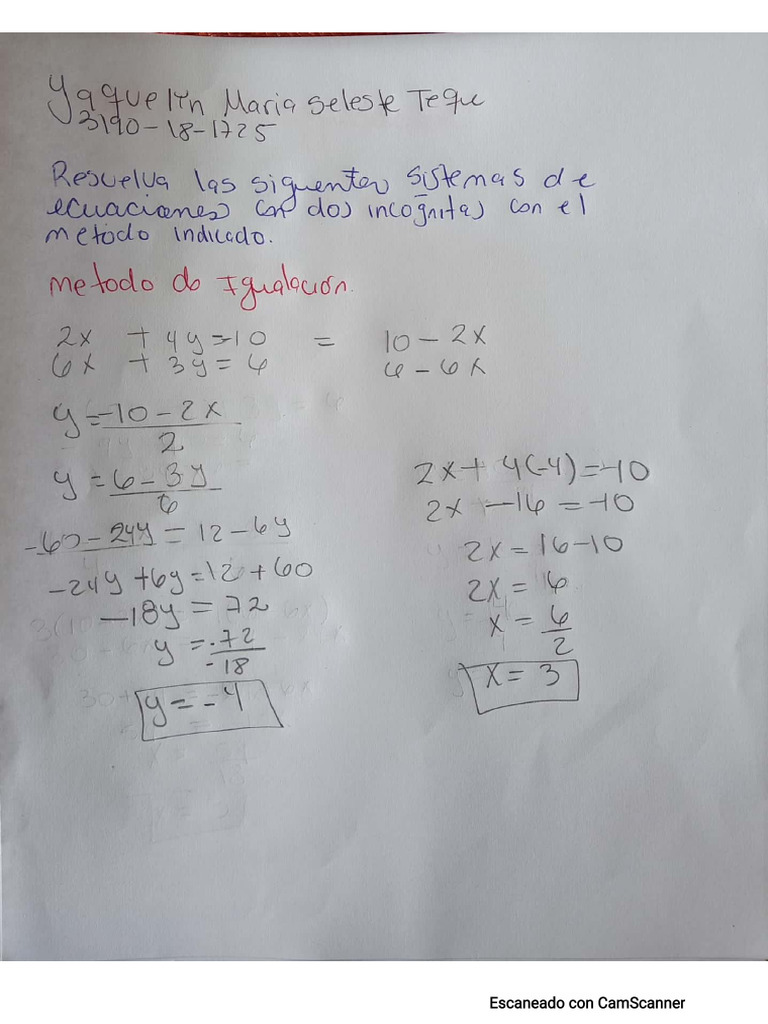 Yaquelin Maria Seleste Teque
3190-18-1725
Resuelva las siguientes sistemas de
ecuaciones con dos incognitas con el
metodo indicado.
Metodo de Igualación.
2x + 4y=-10 = 10-2x
6x + 3y = 6 6-6x
y = -10-2x
2
y = 6-3y
6
-60-24y = 12-6y
-24y+6y=12+60
-18y = 72
y = -72
-18
y = -4
2x+4(-4)=-10
2x -16 = -10
2x = 16-10
2x = 6
x = 6
2
x = 3
Escaneado con CamScanner